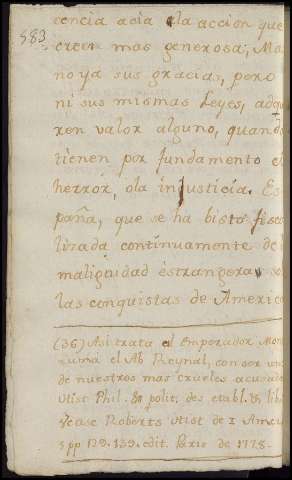 583
cencia acia ela accion que
creen mas generosa; Ma
no ya sus gracias, pero
ni sus mismas Leyes, adqu
ren valor alguno, quando
tienen por fundamento el
herrór, ola injusticia. Es
paña, que se ha bisto fisca
lizada continuamente de
malignidad estrangera so
las conquistas de America
(36) Asi trata el Emperador Mon
zuma el Ab Reynal, con ser uno
de nuestros mas crueles acusado
Hist Phil. & polit. des etabl. &. lib
Vease Roberts Hist de l Amer
3 pp 129. 139. edit. Paris de 1778.